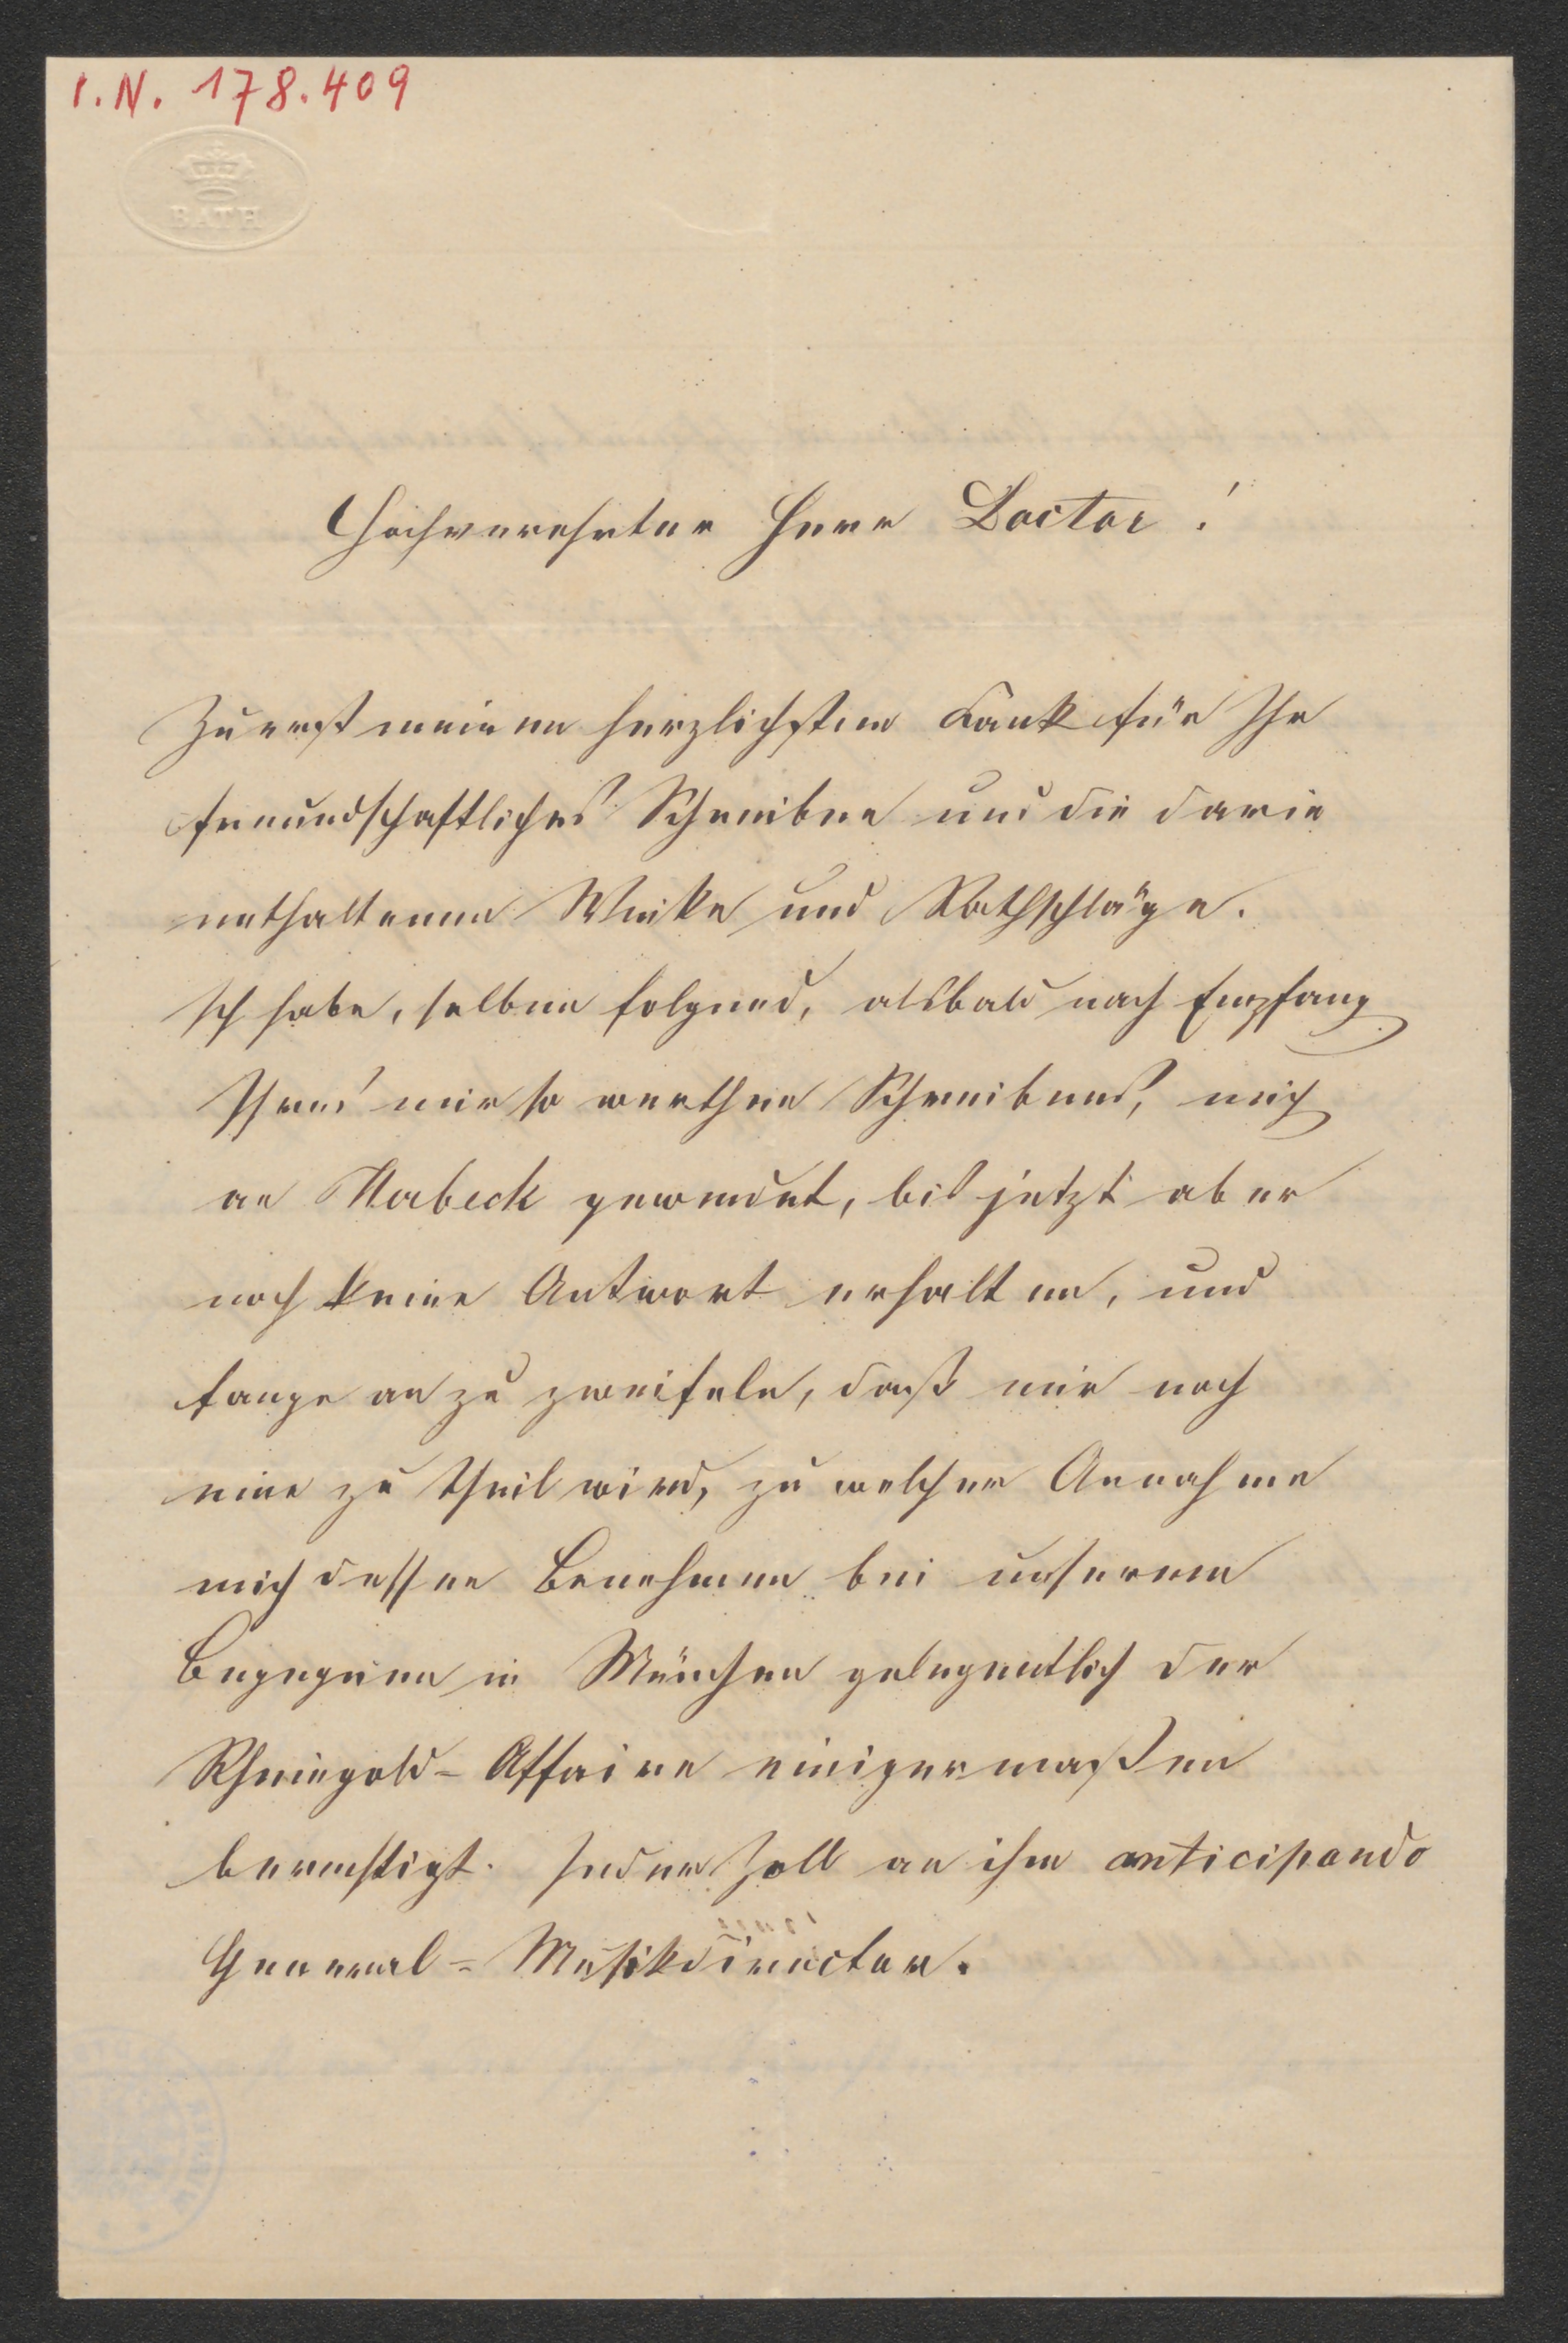 I.N. 178.409
BATH
Hochverehrter Herr Doctor!
Zuerst meinen herzlichsten Dank für Ihr
freundschaftliches Schreiben und die darin
enthaltenen Winke und Rathschläge.
Ich habe, selben folgend, alsbald nach Empfang
Ihres mir so werthen Schreibens, mich
an Herbeck gewendet, bis jetzt aber
noch keine Antwort erhalten, und
fange an zu zweifeln, daß mir noch
eine zu theil wird, zu welcher Annahme
mich dessen Benehmen bei unserem
Begegnen in München gelegentlich der
Rheingold-Affaire einigermaßen
berechtigt. Jeder Zoll an ihm anticipando
General-Musikdirector.